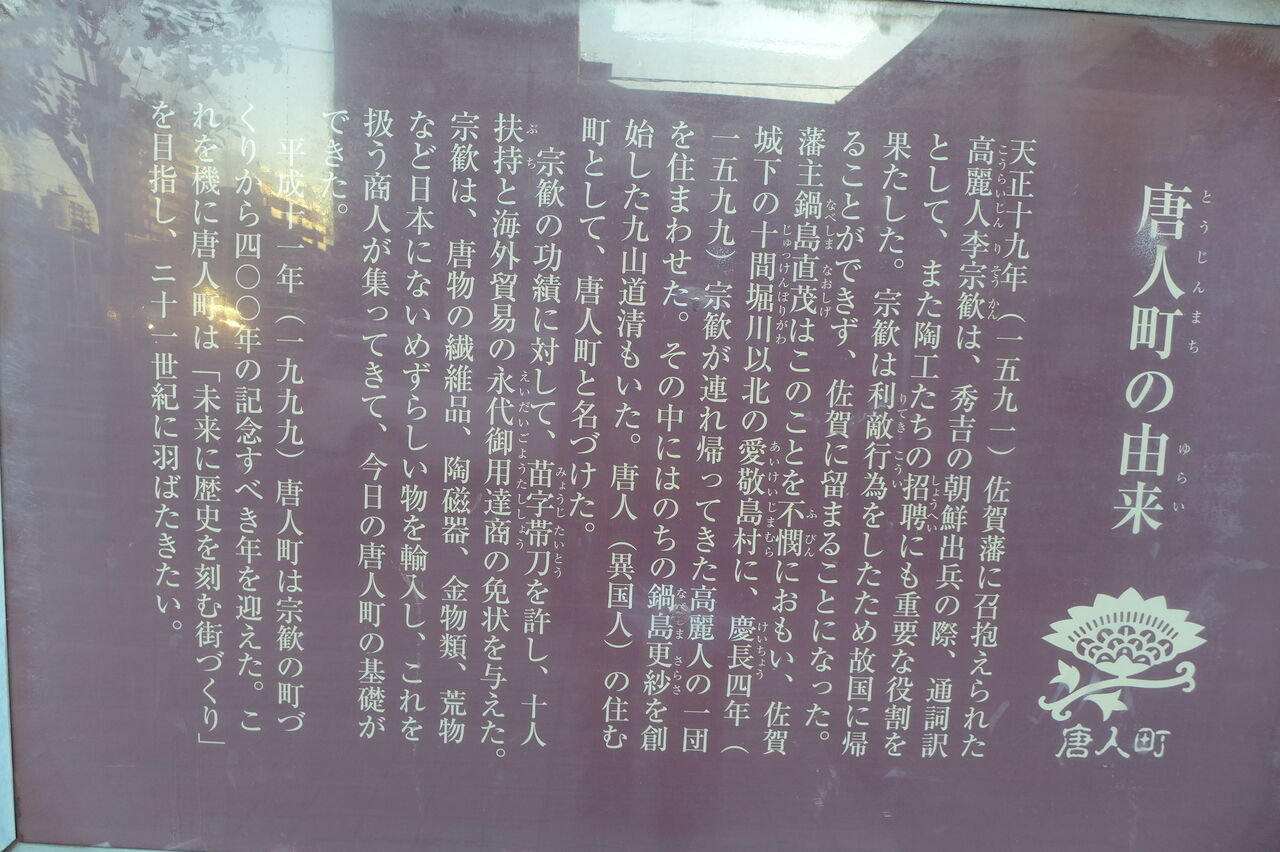 唐人町の由来
とうじんまち ゆらい
天正十九年（一五九一）佐賀藩に召抱えられた
高麗人李宗歓は、秀吉の朝鮮出兵の際、通詞訳
こうらいじん り そう かん
として、また陶工たちの招聘にも重要な役割を
しょうへい
果たした。宗歓は利敵行為をしたため故国に帰
りてき こうい
ることができず、佐賀に留まることになった。
藩主鍋島直茂はこのことを不憫におもい、佐賀
なべしま なおしげ ふ びん
城下の十間堀川以北の愛敬島村に、慶長四年（
じゅっけんぼりがわ あいけいじまむら けいちょう
一五九九）宗歓が連れ帰ってきた高麗人の一団
を住まわせた。その中にはのちの鍋島更紗を創
なべしま さらさ
始した九山道清もいた。唐人（異国人）の住む
町として、唐人町と名づけた。
宗歓の功績に対して、苗字帯刀を許し、十人
みょうじ たいとう
扶持と海外貿易の永代御用達商の免状を与えた。
ぶ ち えいだいごようたししょう
宗歓は、唐物の繊維品、陶磁器、金物類、荒物
など日本にないめずらしい物を輸入し、これを
扱う商人が集ってきて、今日の唐人町の基礎が
できた。
平成十一年（一九九九）唐人町は宗歓の町づ
くりから四〇〇年の記念すべき年を迎えた。こ
れを機に唐人町は「未来に歴史を刻む街づくり」
を目指し、二十一世紀に羽ばたきたい。
唐人町